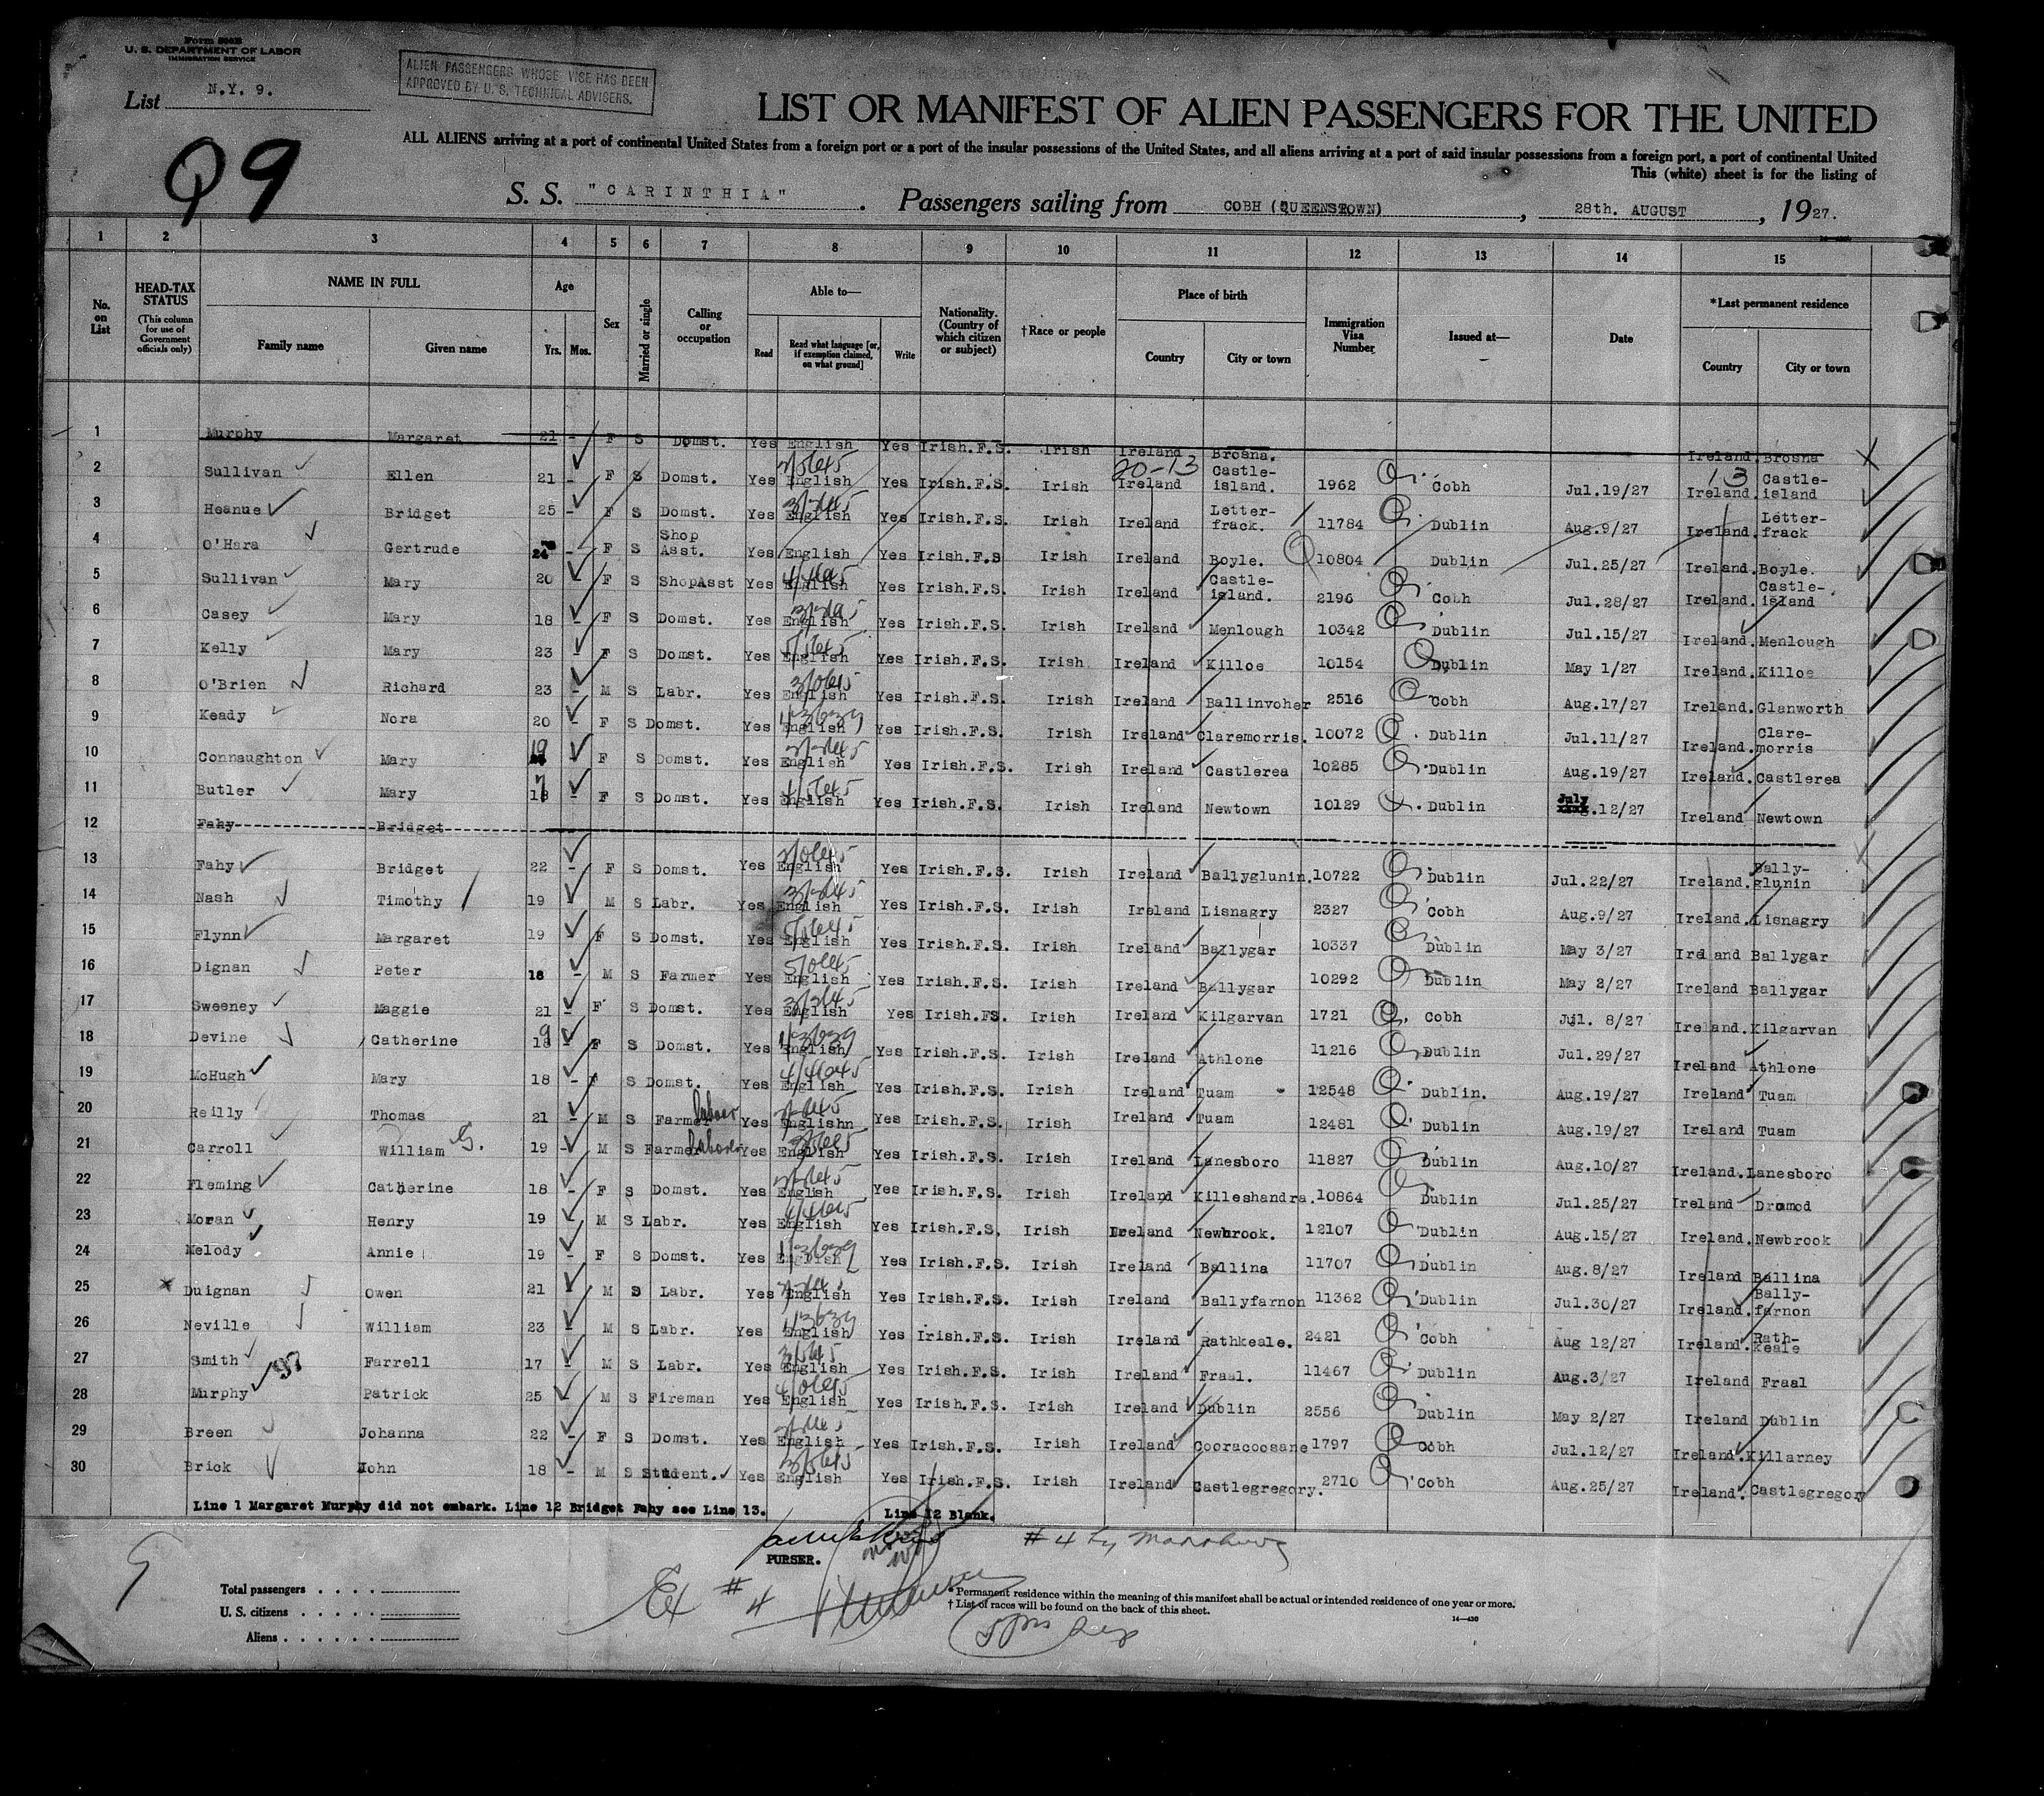 Form 500B
U. S. DEPARTMENT OF LABOR
IMMIGRATION SERVICE
List N.Y. 9.
ALIEN PASSENGERS WHOSE VISE HAS BEEN
APPROVED BY U. S. TECHNICAL ADVISERS.
99
LIST OR MANIFEST OF ALIEN PASSENGERS FOR THE UNITED
ALL ALIENS arriving at a port of continental United States from a foreign port or a port of the insular possessions of the United States, and all aliens arriving at a port of said insular possessions from a foreign port, a port of continental United
This (white) sheet is for the listing of
S. S. "CARINTHIA". Passengers sailing from COBH (QUEENSTOWN), 28th. AUGUST, 1927.
1 2 3 4 5 6 7 8 9 10 11 12 13 14 15
No. on List
HEAD-TAX STATUS (This column for use of Government officials only)
NAME IN FULL Family name Given name
Age Yrs. Mos.
Sex
Married or single
Calling or occupation
Able to— Read Read what language [or, if exemption claimed, on what ground] Write
Nationality. (Country of which citizen or subject)
†Race or people
Place of birth Country City or town
Immigration Visa Number
Issued at—
Date
*Last permanent residence Country City or town
1 Murphy Margaret 21 - F S Domst. Yes English Yes Irish.F.S. Irish Ireland Brosna. Ireland. Brosna
2 Sullivan Ellen 21 - F S Domst. Yes English Yes Irish.F.S. Irish 20-13 Ireland Castle-island. 1962 Cobh Jul.19/27 13 Ireland. Castle-island
3 Heanue Bridget 25 - F S Domst. Yes English Yes Irish.F.S. Irish Ireland Letter-frack. 11784 Dublin Aug.9/27 Ireland. Letter-frack
4 O'Hara Gertrude 24 - F S Shop Asst. Yes English Yes Irish.F.S Irish Ireland Boyle. 10804 Dublin Jul.25/27 Ireland. Boyle.
5 Sullivan Mary 20 - F S ShopAsst Yes English Yes Irish.F.S. Irish Ireland Castle-island. 2196 Cobh Jul.28/27 Ireland. Castle-island
6 Casey Mary 18 - F S Domst. Yes English Yes Irish.F.S. Irish Ireland Menlough 10342 Dublin Jul.15/27 Ireland. Menlough
7 Kelly Mary 23 - F S Domst. Yes English Yes Irish.F.S. Irish Ireland Killoe 10154 Dublin May 1/27 Ireland. Killoe
8 O'Brien Richard 23 - M S Labr. Yes English Yes Irish.F.S. Irish Ireland Ballinvoher 2516 Cobh Aug.17/27 Ireland. Glanworth
9 Keady Nora 20 - F S Domst. Yes English Yes Irish.F.S. Irish Ireland Claremorris. 10072 Dublin Jul.11/27 Ireland. Clare-morris
10 Connaughton Mary 19 - F S Domst. Yes English Yes Irish.F.S. Irish Ireland Castlerea 10285 Dublin Aug.19/27 Ireland. Castlerea
11 Butler Mary 18 7 - F S Domst. Yes English Yes Irish.F.S. Irish Ireland Newtown 10129 Dublin July .12/27 Ireland Newtown
12 Fahy Bridget
13 Fahy Bridget 22 - F S Domst. Yes English Yes Irish.F.S. Irish Ireland Ballyglunin. 10722 Dublin Jul.22/27 Ireland. Bally-glunin
14 Nash Timothy 19 M S Labr. Yes English Yes Irish.F.S. Irish Ireland Lisnagry 2327 Cobh Aug.9/27 Ireland. Lisnagry
15 Flynn Margaret 19 - F S Domst. Yes English Yes Irish.F.S. Irish Ireland Ballygar 10337 Dublin May 3/27 Ireland Ballygar
16 Dignan Peter 18 - M S Farmer Yes English Yes Irish.F.S. Irish Ireland Ballygar 10292 Dublin May 2/27 Ireland Ballygar
17 Sweeney Maggie 21 - F S Domst. Yes English Yes Irish.FS. Irish Ireland Kilgarvan 1721 Cobh Jul. 8/27 Ireland. Kilgarvan
18 Devine Catherine 18 9 - F S Domst. Yes English Yes Irish.F.S. Irish Ireland Athlone 11216 Dublin Jul.29/27 Ireland Athlone
19 McHugh Mary 18 - F S Domst. Yes English Yes Irish.F.S. Irish Ireland Tuam 12548 Dublin. Aug.19/27 Ireland Tuam
20 Reilly Thomas 21 - M S Farmer Laborer Yes Englishn Yes Irish.F.S. Irish Ireland Tuam 12481 Dublin Aug.19/27 Ireland Tuam
21 Carroll William G. 19 - M S Farmer Laborer Yes English Yes Irish.F.S. Irish Ireland Lanesboro 11827 Dublin Aug.10/27 Ireland. Lanesboro
22 Fleming Catherine 18 - F S Domst. Yes English Yes Irish.F.S. Irish Ireland Killeshandra. 10864 Dublin Jul.25/27 Ireland Dromod
23 Moran Henry 19 - M S Labr. Yes English Yes Irish.F.S. Irish Ireland Newbrook. 12107 Dublin Aug.15/27 Ireland. Newbrook
24 Melody Annie 19 - F S Domst. Yes English Yes Irish.F.S. Irish Ireland Ballina 11707 Dublin Aug.8/27 Ireland Ballina
25 Duignan Owen 21 - M S Labr. Yes English Yes Irish.F.S. Irish Ireland Ballyfarnon 11362 Dublin Jul.30/27 Ireland. Bally-farnon
26 Neville William 23 - M S Labr. Yes English Yes Irish.F.S. Irish Ireland Rathkeale. 2421 Cobh Aug 12/27 Ireland. Rath-keale
27 Smith Farrell 17 - M S Labr. Yes English Yes Irish.F.S. Irish Ireland Fraal. 11467 Dublin Aug.3/27 Ireland Fraal
28 Murphy Patrick 25 M S Fireman Yes English Yes Irish.F.S. Irish Ireland Dublin 2556 Dublin May 2/27 Ireland Dublin
29 Breen Johanna 22 - F S Domst. Yes English Yes Irish.F.S. Irish Ireland Cooracoosane 1797 Cobh Jul.12/27 Ireland. Killarney
30 Brick John 18 - M S Student. Yes English Yes Irish.F.S. Irish Ireland Castlegregory. 2710 Cobh Aug.25/27 Ireland. Castlegregory
Line 1 Margaret Murphy did not embark. Line 12 Bridget Fahy see Line 13. Line 12 Blank.
PURSER.
Ex # 4
# 4 by
Total passengers
U. S. citizens
Aliens
* Permanent residence within the meaning of this manifest shall be actual or intended residence of one year or more.
† List of races will be found on the back of this sheet.
14—430